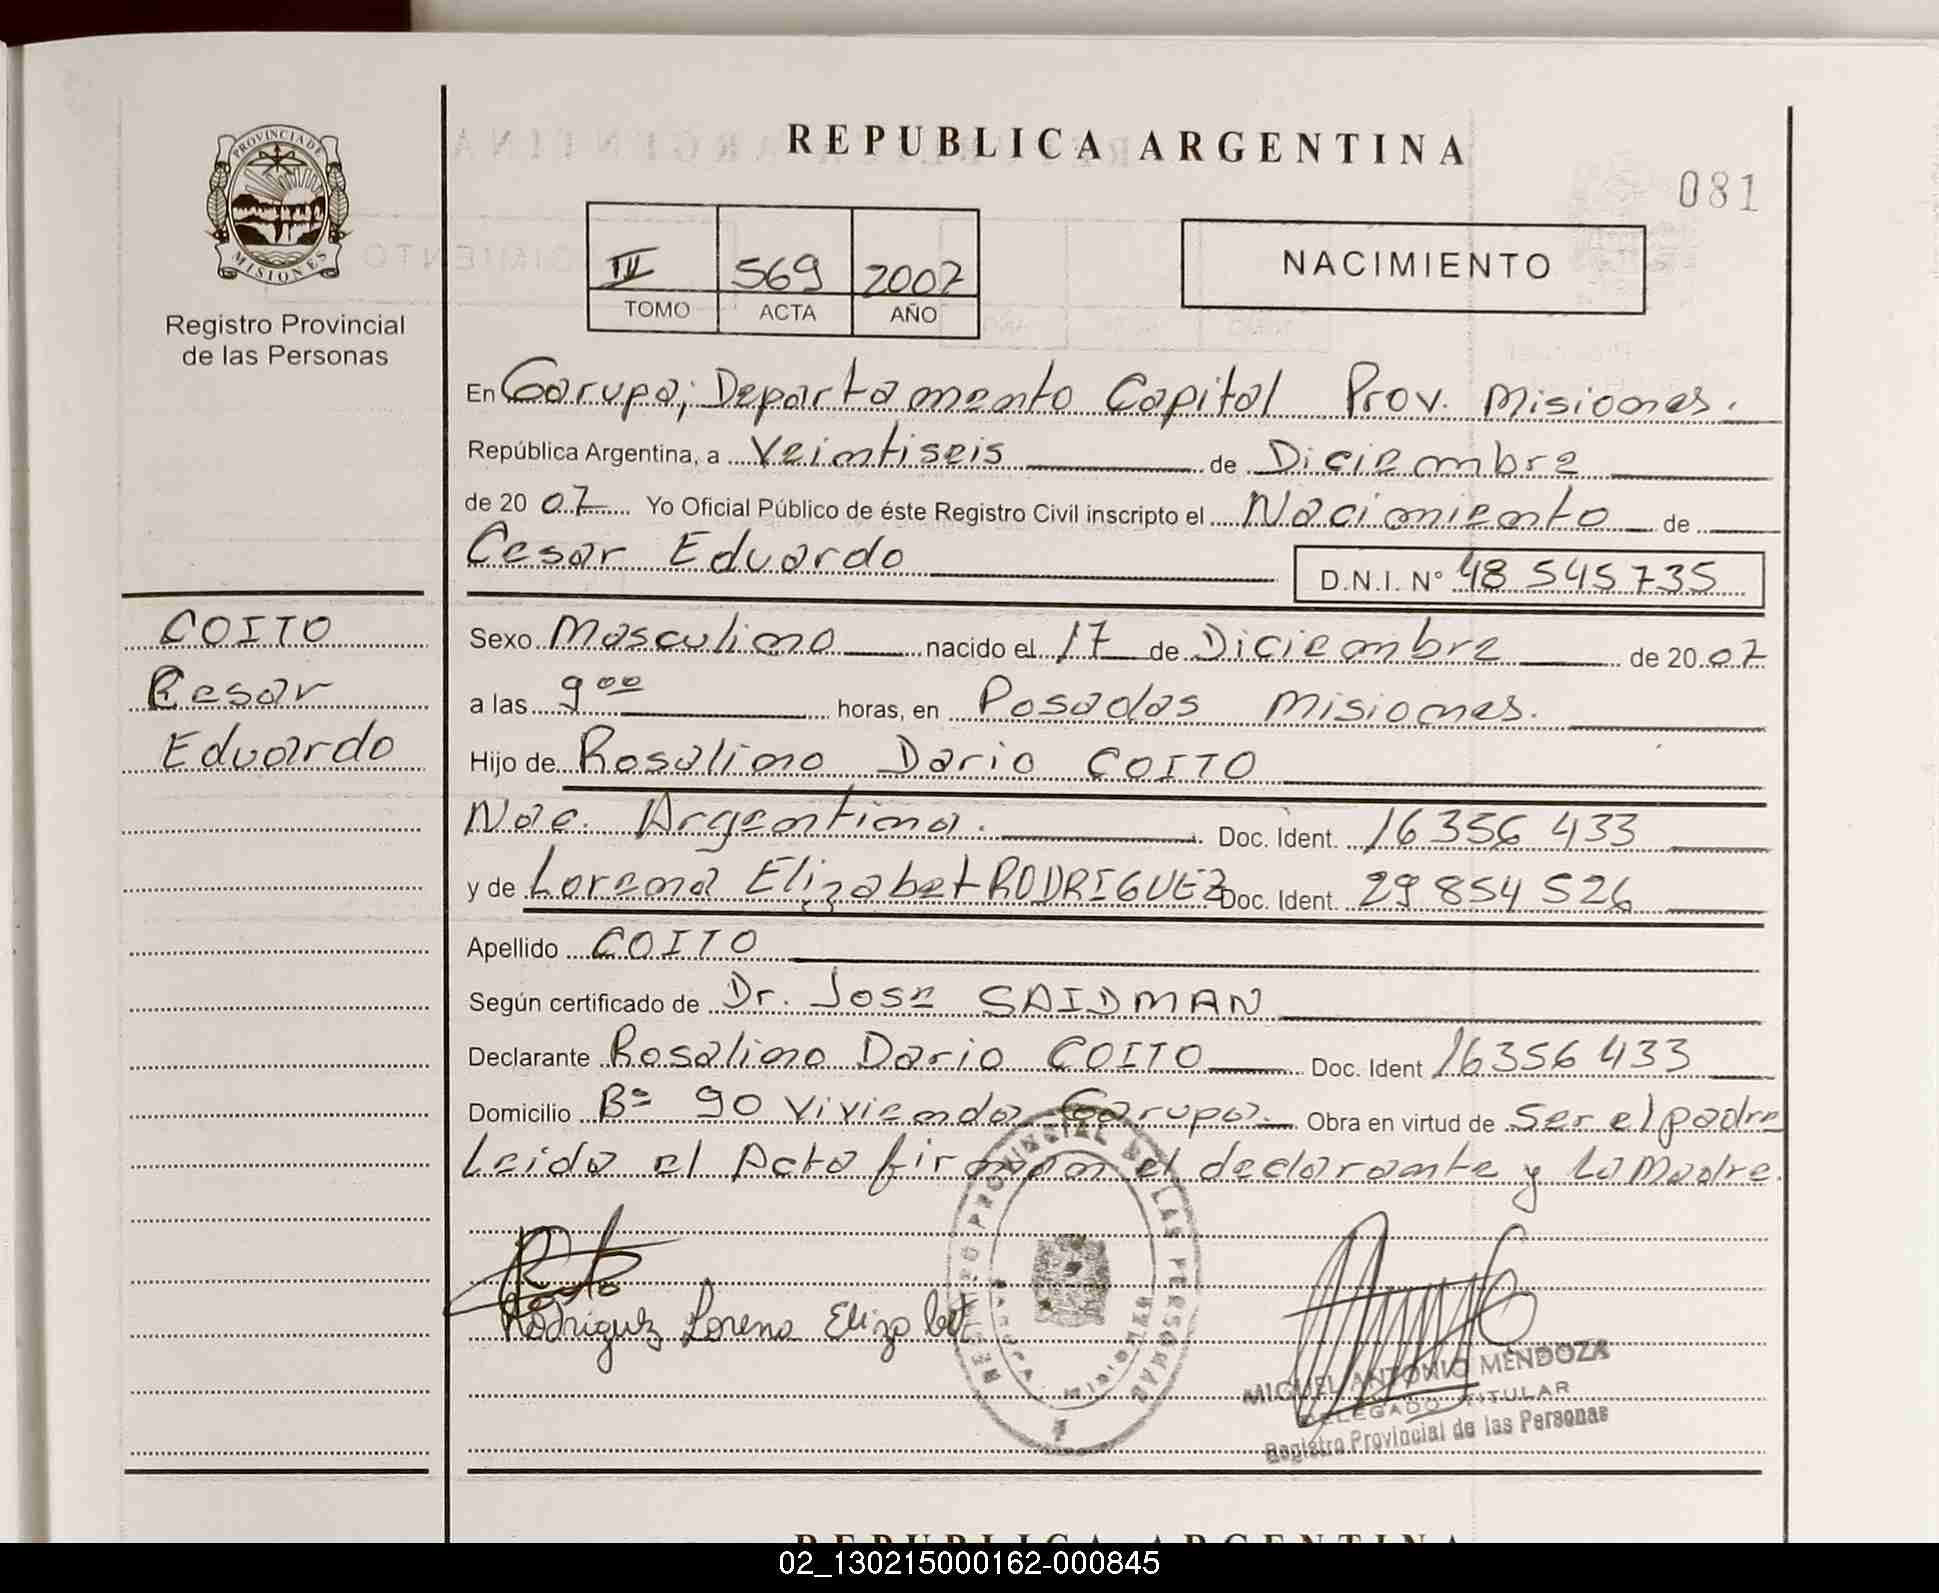 REPUBLICA ARGENTINA
081
PROVINCIA DE
MISIONES
Registro Provincial
de las Personas
IV 569 2007
TOMO ACTA AÑO
NACIMIENTO
En Garupa; Departamento Capital Prov. Misiones.
República Argentina, a Veintiseis de Diciembre
de 20 07 Yo Oficial Público de éste Registro Civil inscripto el Nacimiento de
Cesar Eduardo D.N.I. N° 48 545 735
COITO
Cesar
Eduardo
Sexo Masculino nacido el 17 de Diciembre de 20 07
a las 9 00 horas, en Posadas Misiones.
Hijo de Rosalino Dario COITO
Nac. Argentina. Doc. Ident. 16 356 433
y de Lorena Elizabet RODRIGUEZ Doc. Ident. 29 854 526
Apellido COITO
Según certificado de Dr. Jose SAIDMAN
Declarante Rosalino Dario COITO Doc. Ident 16 356 433
Domicilio Bº 90 Vivienda Garupa. Obra en virtud de Ser el padre
Leida el Acta firman el declarante y la Madre.
Rodriguez Lorena Elizabet
REGISTRO PROVINCIAL DE LAS PERSONAS
MIGUEL ANTONIO MENDOZA
DELEGADO TITULAR
Registro Provincial de las Personas
REPUBLICA ARGENTINA
02_130215000162-000845